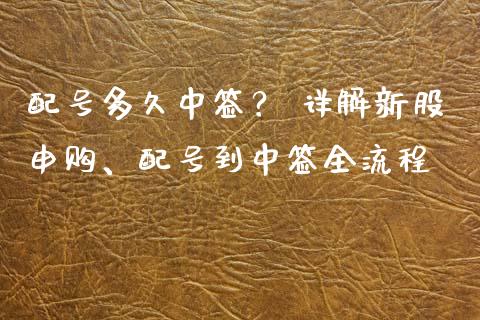 配号多久中签？ 详解新股
申购、配号到中签全流程